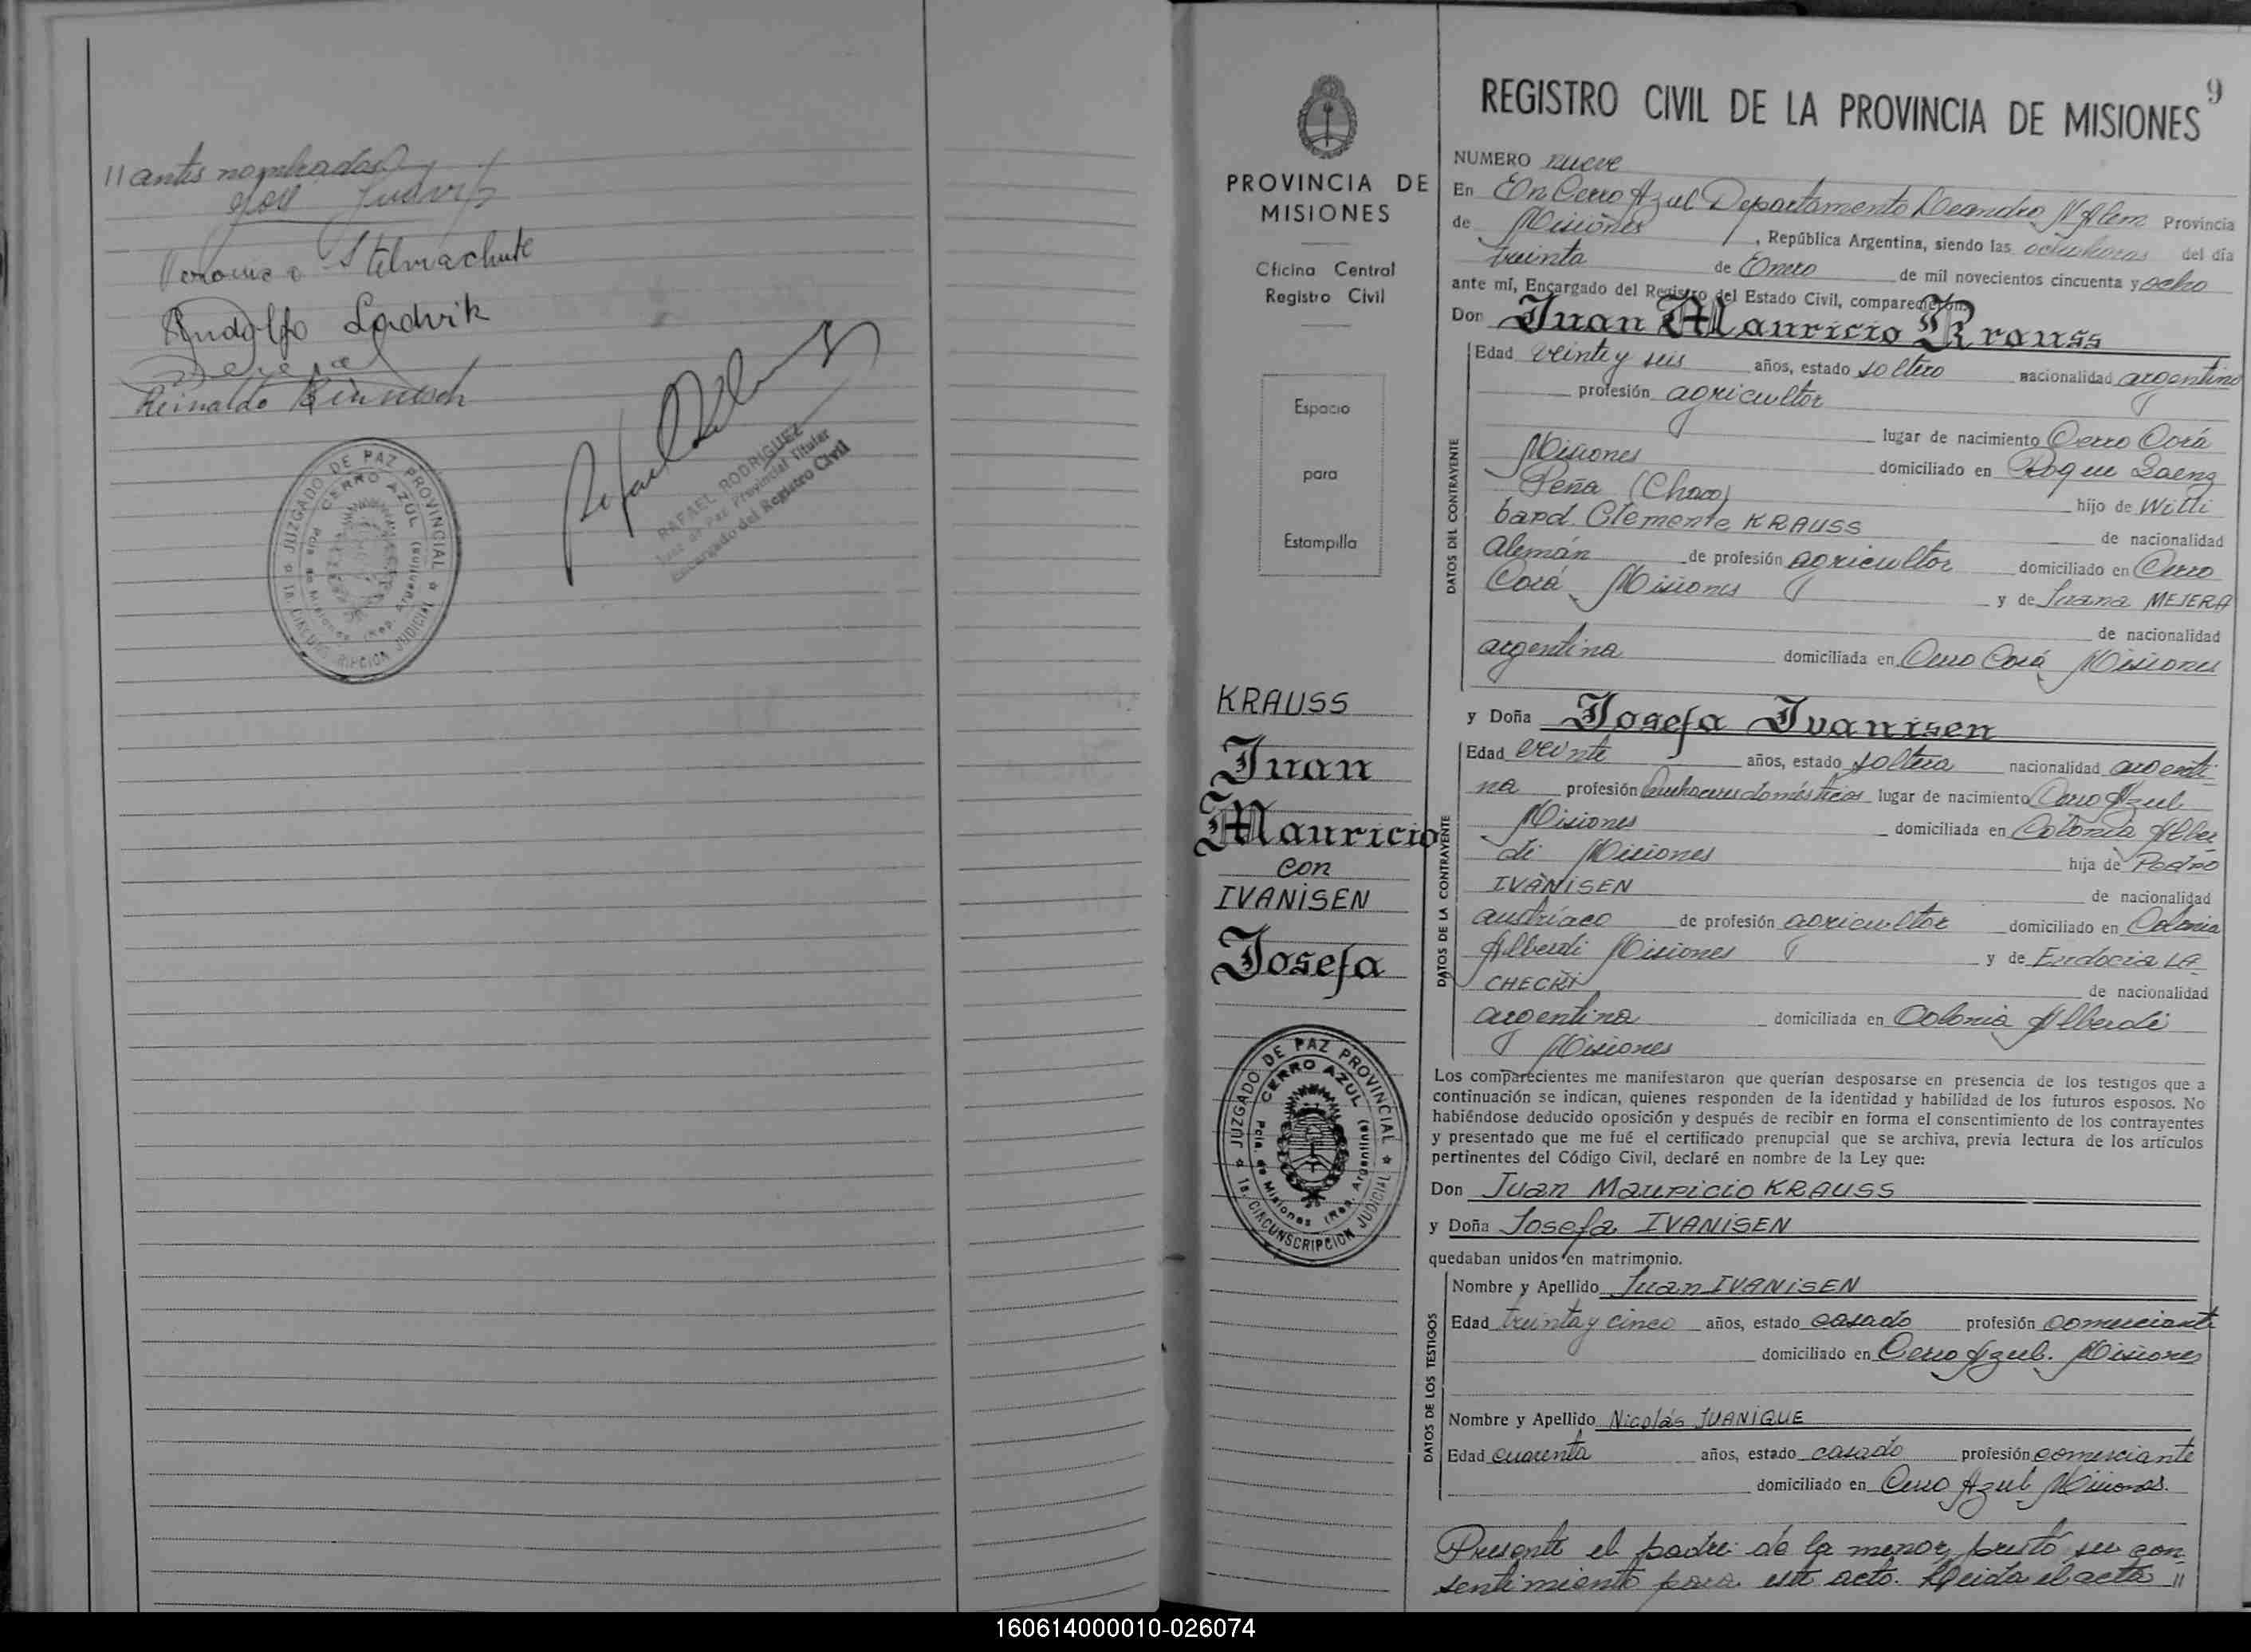 // antes nombradas
José Ludvik
Veronica Stelmachuk
Rudolfo Ladvik
Reinaldo
JUZGADO DE PAZ PROVINCIAL
CERRO AZUL
Pcia. de Misiones (Rep. Argentina)
1a. CIRCUNSCRIPCION JUDICIAL
RAFAEL RODRIGUEZ
Juez de Paz Provincial Titular
Encargado del Registro Civil
PROVINCIA DE
MISIONES
Oficina Central
Registro Civil
Espacio
para
Estampilla
KRAUSS
Juan
Mauricio
con
IVANISEN
Josefa
JUZGADO DE PAZ PROVINCIAL
CERRO AZUL
Pcia. de Misiones (Rep. Argentina)
1a. CIRCUNSCRIPCION JUDICIAL
9
REGISTRO CIVIL DE LA PROVINCIA DE MISIONES
NUMERO nueve
En En Cerro Azul Departamento Leandro N Alem Provincia
de Misiones, República Argentina, siendo las ocho horas del día
treinta de Enero de mil novecientos cincuenta y ocho
ante mí, Encargado del Registro del Estado Civil, comparecieron:
Don Juan Mauricio Krauss
DATOS DEL CONTRAYENTE
Edad veinte y seis años, estado soltero nacionalidad argentino
profesión agricultor
lugar de nacimiento Cerro Corá
Misiones domiciliado en Roque Saenz
Peña (Chaco) hijo de Willi
bard Clemente KRAUSS de nacionalidad
Alemán de profesión agricultor domiciliado en Cerro
Corá Misiones y de Juana MEJERA
de nacionalidad
argentina domiciliada en Cerro Corá Misiones
y Doña Josefa Ivanisen
DATOS DE LA CONTRAYENTE
Edad veinte años, estado soltera nacionalidad argenti-
na profesión quehaceres domésticos lugar de nacimiento Cerro Azul
Misiones domiciliada en Colonia Alber
di Misiones hija de Pedro
IVANISEN de nacionalidad
austríaco de profesión agricultor domiciliado en Colonia
Alberdi Misiones y de Eudocia LA
CHECKI de nacionalidad
argentina domiciliada en Colonia Alberdi
Misiones
Los comparecientes me manifestaron que querían desposarse en presencia de los testigos que a
continuación se indican, quienes responden de la identidad y habilidad de los futuros esposos. No
habiéndose deducido oposición y después de recibir en forma el consentimiento de los contrayentes
y presentado que me fué el certificado prenupcial que se archiva, previa lectura de los artículos
pertinentes del Código Civil, declaré en nombre de la Ley que:
Don Juan Mauricio KRAUSS
y Doña Josefa IVANISEN
quedaban unidos en matrimonio.
DATOS DE LOS TESTIGOS
Nombre y Apellido Juan IVANISEN
Edad treinta y cinco años, estado casado profesión comerciante
domiciliado en Cerro Azul. Misiones
Nombre y Apellido Nicolás JUANIQUE
Edad cuarenta años, estado casado profesión comerciante
domiciliado en Cerro Azul Misiones.
Presente el padre de la menor, prestó su con-
sentimiento para este acto. Leida el acta //
160614000010-026074